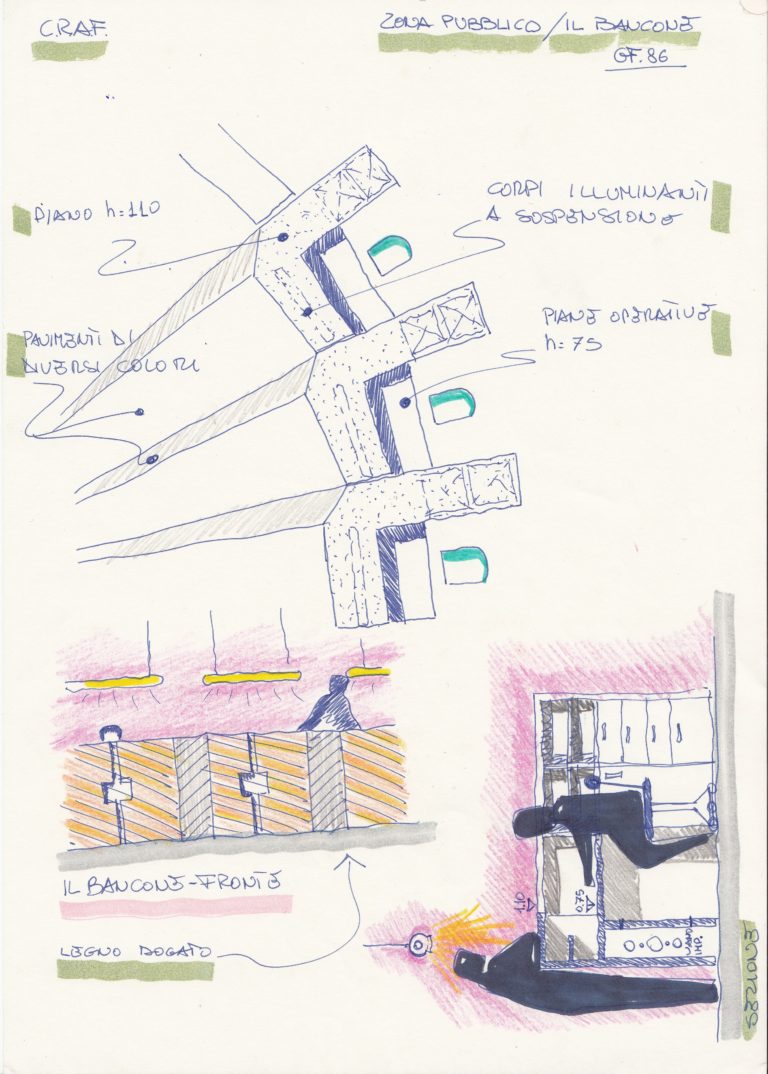 C.R.A.F.
ZONA PUBBLICO / IL BANCONE
GF. 86
PIANO h=110
CORPI ILLUMINANTI
A SOSPENSIONE
PIANE OPERATIVE
h=75
PAVIMENTI DI
DIVERSI COLORI
IL BANCONE-FRONTE
LEGNO DOGATO
1.10
0.75
VANO
IMP.
SEZIONE